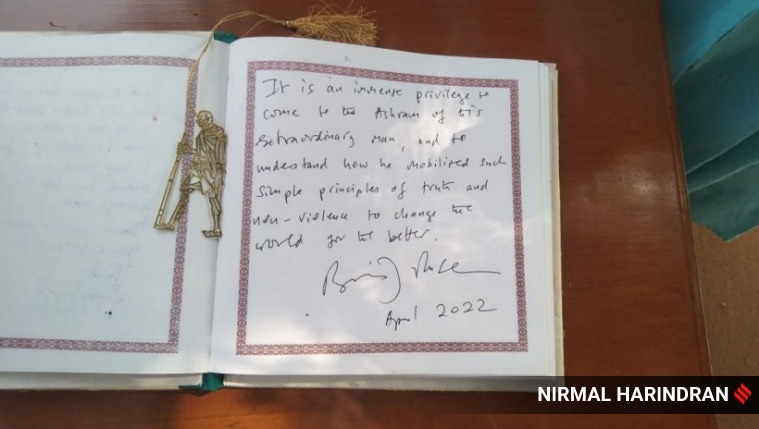 It is an immense privilege to
come to the Ashram of this
extraordinary man, and to
understand how he mobilized such
simple principles of truth and
non-violence to change the
world for the better.
April 2022
NIRMAL HARINDRAN